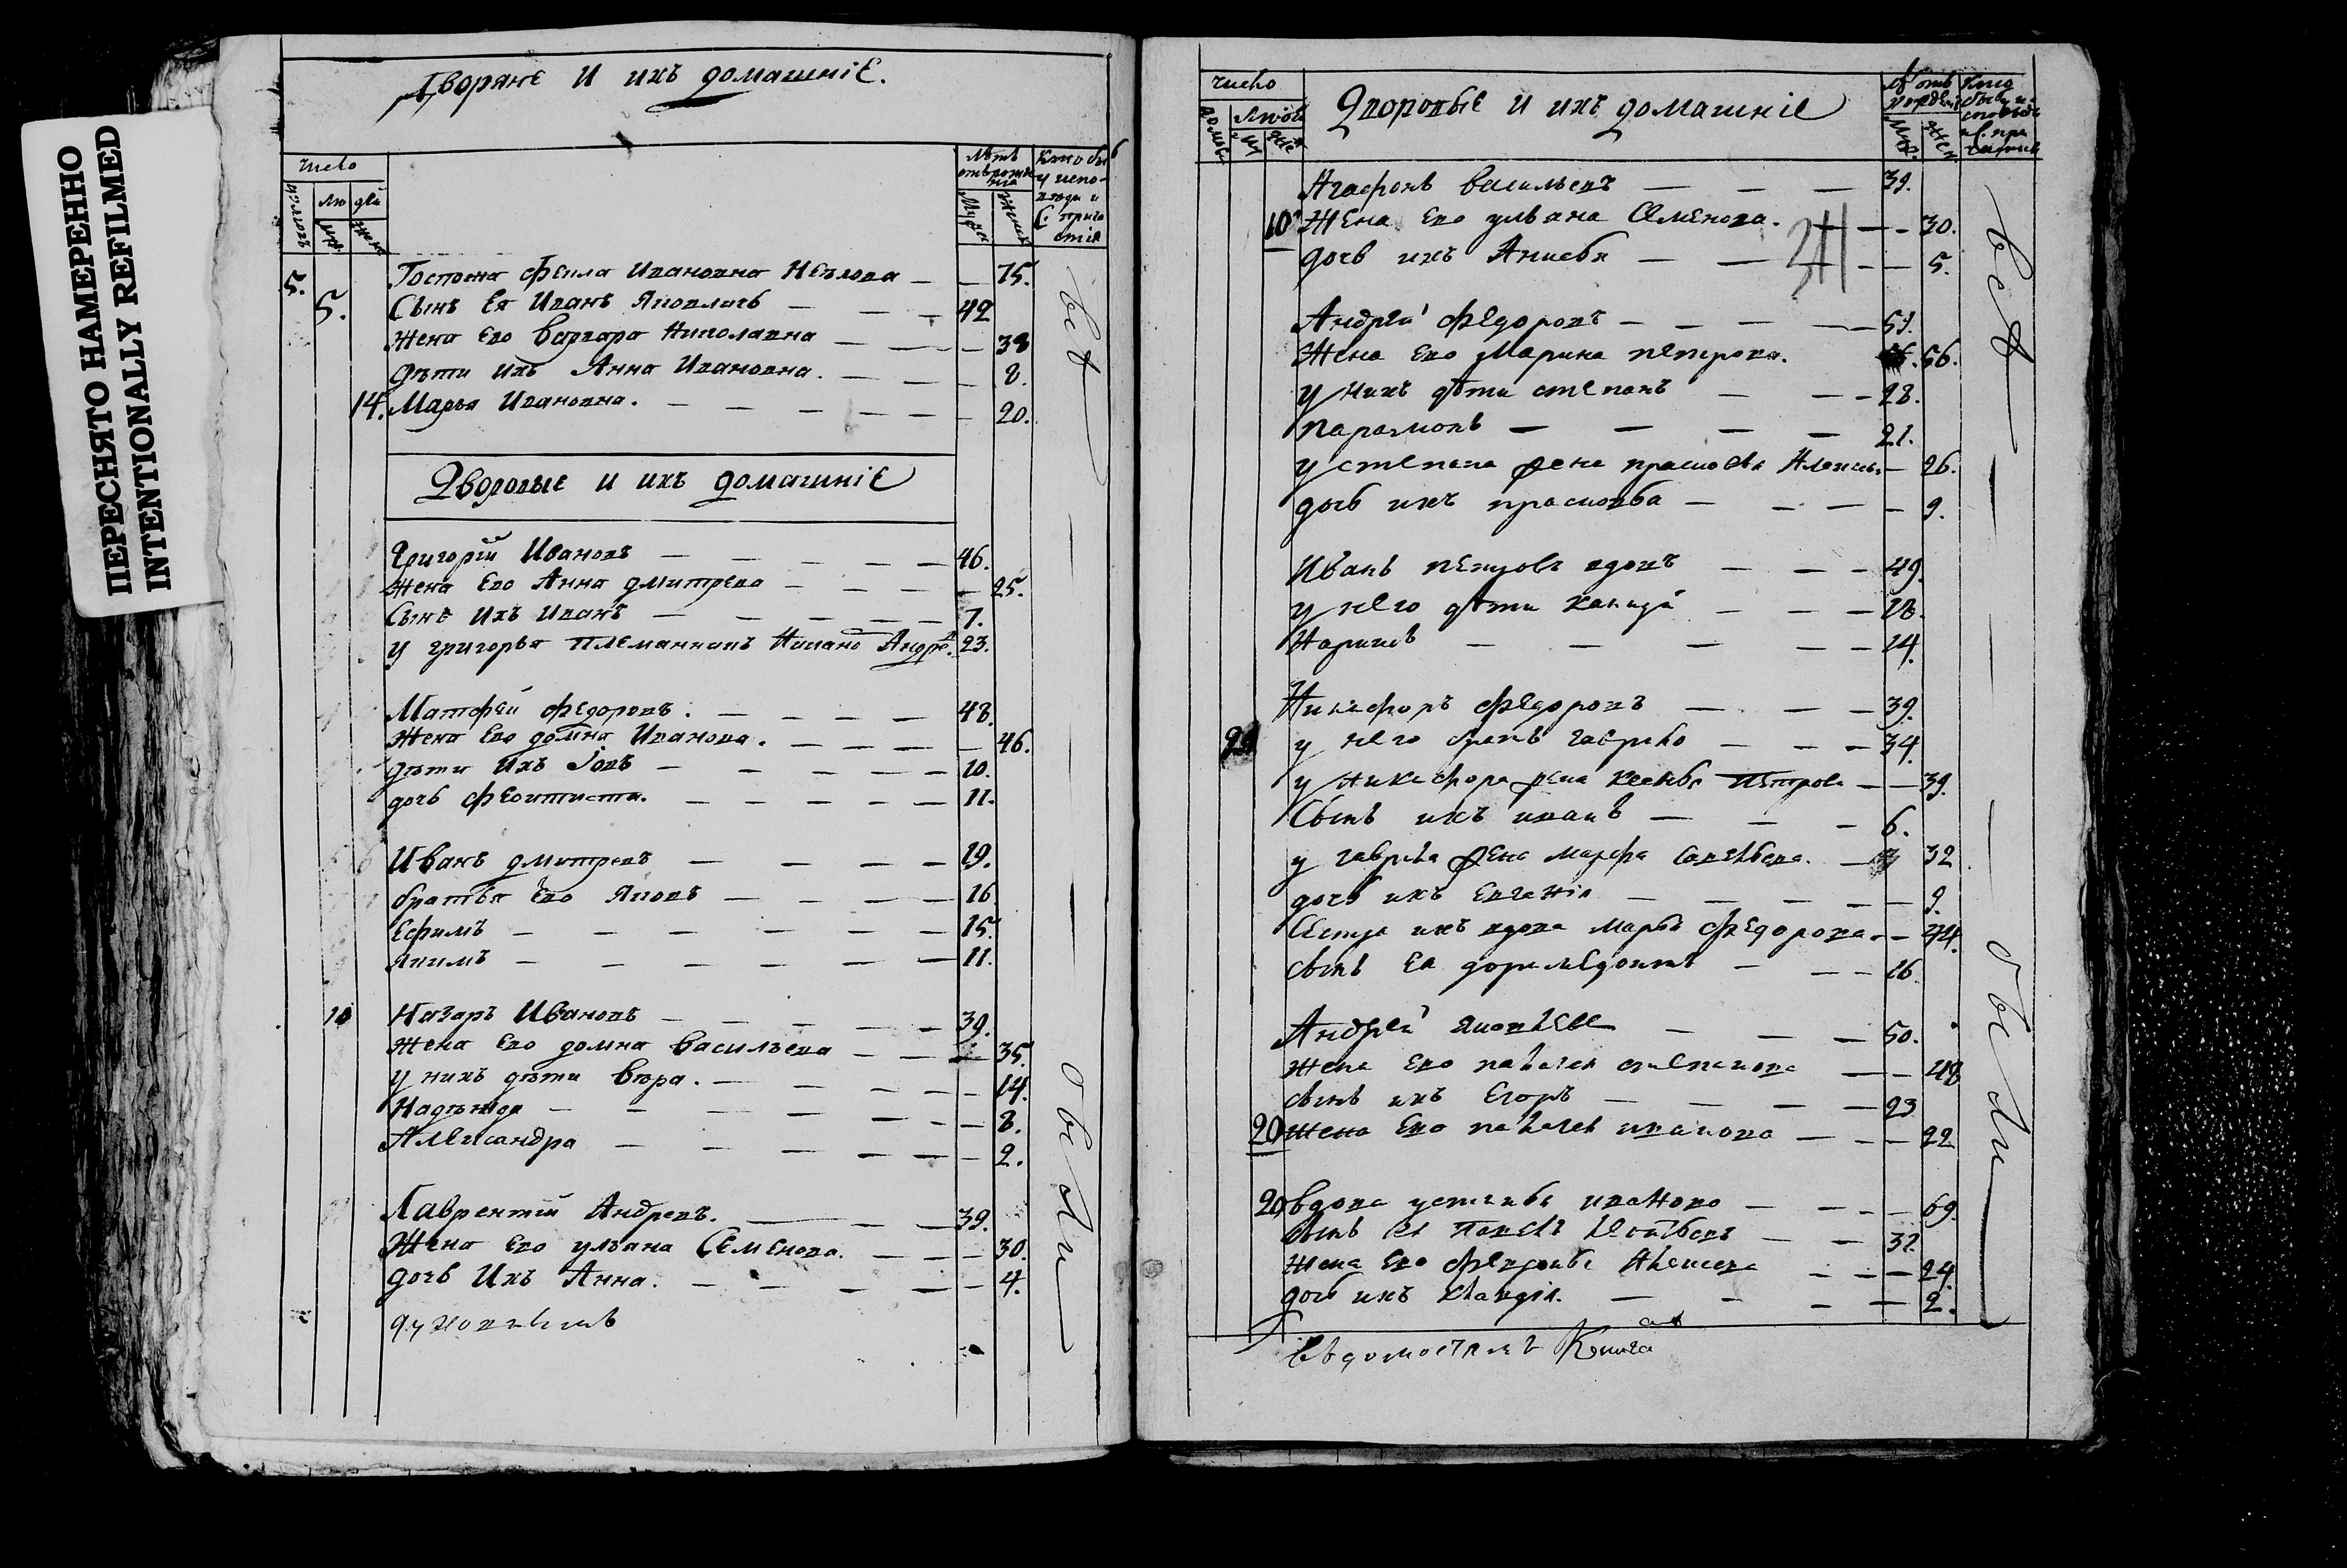 ПЕРЕСНЯТО НАМЕРЕННО
INTENTIONALLY REFILMED
Дворяне и ихъ домашніе.
Число
домовъ
людей
муж.
женс
Лѣтъ отъ рожденія
Мужес
Женск
Кто былъ у исповѣди и С: причастія
5. Госпожа Фекла Ивановна — — 75.
5. Сынъ Ея Иванъ Яковличъ — — 42
жена Его Варвара Николавна — — — 38
Дѣти ихъ Анна Ивановна. — — — 8.
14. Марья Ивановна. — — — — — — 20.
Дворовые и ихъ домашніе
Григорій Ивановъ — — — — — 46.
Жена Его Анна дмитрева — — — — 25.
Сынъ Ихъ Иванъ — — — — — 7.
у григорья племянникъ Андре. 23.
Матфей Федоровъ. — — — — 48.
Жена Его домна Иванова. — — — — — 46.
дѣти Ихъ Іовъ — — — — — 10.
дочь Феоктиста. — — — — — 11.
Иванъ дмитревъ — — — — 19.
братья Его Яковъ — — — — 16
Ефимъ — — — — — — 15.
Якимъ — — — — — — 11.
10 Назаръ Ивановъ — — — — — 39.
Жена Его домна Васильева — — — 35.
у нихъ дѣти Вѣра. — — — — — 14.
Надѣжда — — — — — — — 8.
Александра — — — — — — — 2.
Лаврентій Андревъ. — — — — 39.
Жена Его ульана Семенова. — — — — 30.
дочь Ихъ Анна. — — — — — — 4.
всѣ — — были
Число
домовъ
людей
Дворовые и ихъ домашніе
лѣтъ отъ рожденія
Муж.
Жен.
Кто былъ у исповѣди и с. причастія
Агафонъ Васильевъ — — — 39.
10 Жена Его ульана Семенова. — — 30.
дочь ихъ Анисья — — — — 5.
Андрей Федоровъ — — — —
Жена Его Марина петрова. 56.
у нихъ дѣти степанъ — — — 28.
парамонъ — — — — 21.
у степана жена прасковья — 26.
дочь ихъ прасковья — — — — 9.
Иванъ петровъ вдовъ — — — 49.
у него дѣти — — —
— — — — — 14.
Никифоръ Федоровъ — — — 39.
у него братъ гаврило — — — 34.
у никифора жена ксенья петрова — — 39.
Сынъ ихъ иванъ — — — 6.
у гаврила жена марфа савельева. — 32
дочь ихъ евгенія — — — — — 9.
Сестра ихъ вдова марья Федорова — — 44.
сынъ ея доримедонтъ — — — 16.
Андрей яковлевъ — — — 50.
жена Его палагея степанова — — 48
сынъ ихъ Егоръ — — — — 23
20 жена Его палагея иванова — — — 22
20 вдова устинья иванова — — — — 69.
сынъ ея павелъ — —
жена Его Алексева — — — 24.
дочь ихъ клавдія. — — — — 2.
всѣ — — были
вѣдомостямъ Книга